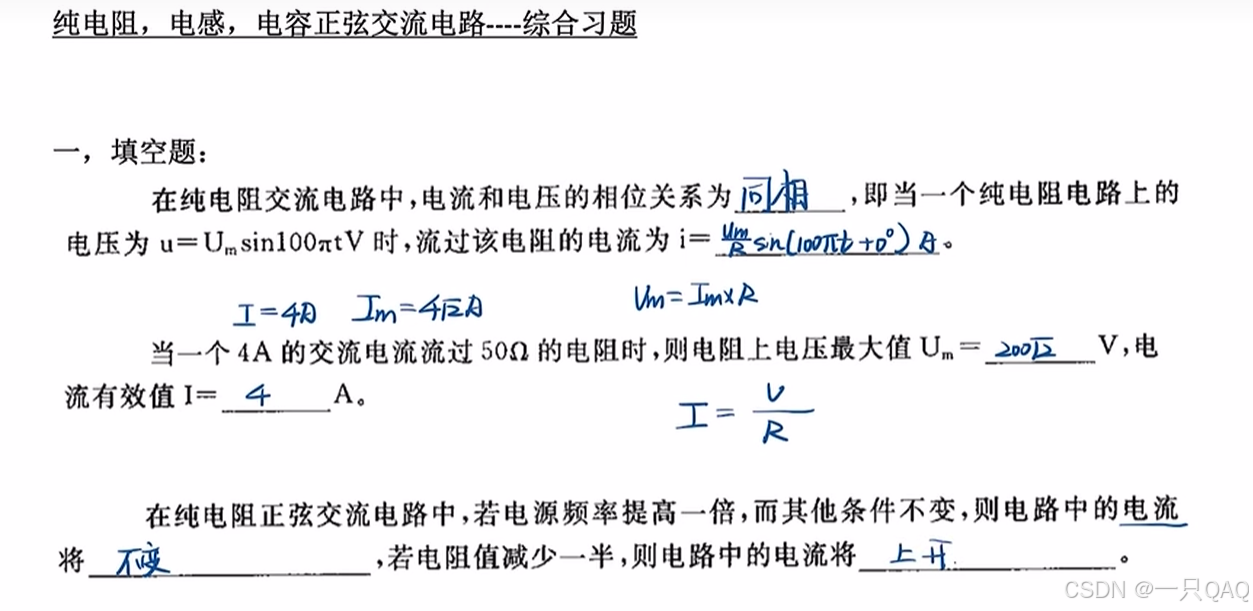 纯电阻，电感，电容正弦交流电路----综合习题
一，填空题：
在纯电阻交流电路中，电流和电压的相位关系为 同相 ，即当一个纯电阻电路上的
电压为 u＝Uₘsin100πtV 时，流过该电阻的电流为 i＝ Um/R sin(100πt+0°) A 。
I=4A Im=4√2A Um=Im×R
当一个 4A 的交流电流流过 50Ω 的电阻时，则电阻上电压最大值 Uₘ＝ 200√2 V，电
流有效值 I＝ 4 A。
I = U/R
在纯电阻正弦交流电路中，若电源频率提高一倍，而其他条件不变，则电路中的电流
将 不变 ，若电阻值减少一半，则电路中的电流将 上升 。
CSDN @一只QAQ